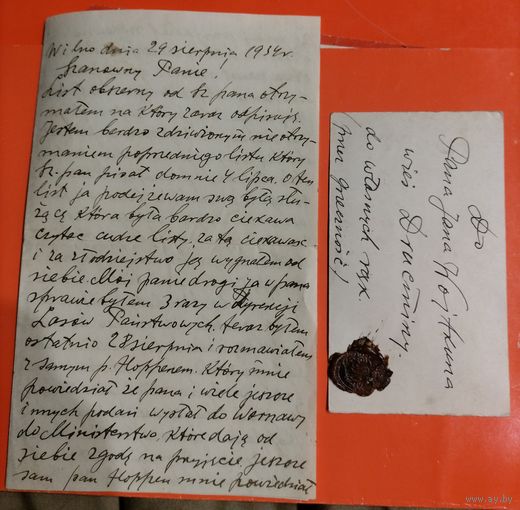 Wilno dnia 29 sierpnia 1934 r.
Szanowny Panie!
List obszerny od sz pana otrzy-
małem na który zaraz odpisuję.
Jestem bardzo zdziwionym nie otrzy-
maniem poprzedniego listu który
sz. pan pisał do mnie 4 lipca. O ten
list ja podejżewam swą byłą słu-
żącę która była bardzo ciekawa
czytać cudze listy, za tą ciekawość
i za złodziejstwo ją wygnałem od
siebie. Mój panie drogi ja w pana
sprawie byłem 3 razy w Dyrekcji
Lasów Państwowych, teraz byłem
ostatnio 28 sierpnia i rozmawiałem
z samym p. Hoppenem. Który mnie
powiedział że pana i wiele jeszcze
innych podań wysłał do Warszawy
do Ministerstwa, które dają od
siebie zgodę na przyjęcie, jeszcze
sam pan Hoppen mnie powiedział
Do
Pana Jana Wojtkuna
wieś
do własnych rąk.
(przez grzeczność)
www.ay.by